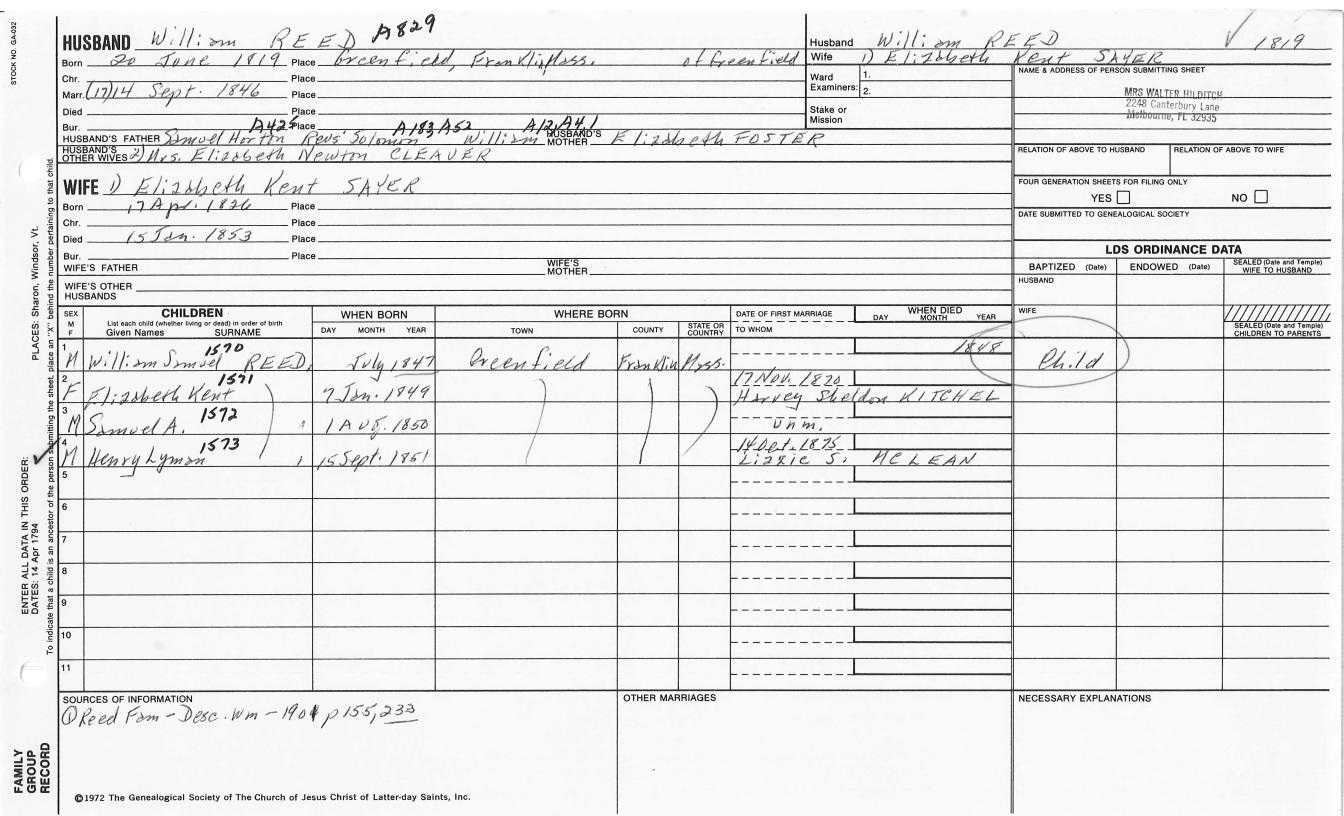 STOCK NO. GA-032
HUSBAND William REED A829
Born 20 June 1819 Place Greenfield, Franklin, Mass. of Greenfield
Chr. Place
Marr. (17)14 Sept. 1846 Place
Died Place
Bur. Place
A425 A183 A52 A12, A4, 1
HUSBAND'S FATHER Samuel Horton Revs' Solomon William HUSBAND'S MOTHER Elizabeth FOSTER
HUSBAND'S OTHER WIVES 2) Mrs. Elizabeth Newton CLEAVER
WIFE 1) Elizabeth Kent SAYER
Born 17 Apr. 1826 Place
Chr. Place
Died 15 Jan. 1853 Place
Bur. Place
WIFE'S FATHER WIFE'S MOTHER
WIFE'S OTHER HUSBANDS
Husband William REED ✓ 1819
Wife 1) Elizabeth Kent SAYER
Ward Examiners: 1.
2.
Stake or Mission
NAME & ADDRESS OF PERSON SUBMITTING SHEET
MRS WALTER HILDITCH
2248 Canterbury Lane
Melbourne, FL 32935
RELATION OF ABOVE TO HUSBAND RELATION OF ABOVE TO WIFE
FOUR GENERATION SHEETS FOR FILING ONLY
YES NO
DATE SUBMITTED TO GENEALOGICAL SOCIETY
LDS ORDINANCE DATA
BAPTIZED (Date) ENDOWED (Date) SEALED (Date and Temple) WIFE TO HUSBAND
HUSBAND
WIFE
SEALED (Date and Temple) CHILDREN TO PARENTS
SEX M F CHILDREN WHEN BORN WHERE BORN DATE OF FIRST MARRIAGE WHEN DIED
List each child (whether living or dead) in order of birth
Given Names SURNAME DAY MONTH YEAR TOWN COUNTY STATE OR COUNTRY TO WHOM DAY MONTH YEAR
1 M William Samuel 1570 REED, July 1847 Greenfield Franklin Mass. 1848 Child
2 F Elizabeth Kent 1571 7 Jan. 1849 17 Nov. 1870 Harvey Sheldon KITCHEL
3 M Samuel A. 1572 1 Aug. 1850 unm.
4 M Henry Lyman 1573 15 Sept. 1851 14 Oct. 1875 Lizzie S. MCLEAN
5
6
7
8
9
10
11
SOURCES OF INFORMATION OTHER MARRIAGES NECESSARY EXPLANATIONS
① Reed Fam - Desc. Wm - 1901 p 155, 233
©1972 The Genealogical Society of The Church of Jesus Christ of Latter-day Saints, Inc.
FAMILY GROUP RECORD
ENTER ALL DATA IN THIS ORDER:
DATES: 14 Apr 1794
PLACES: Sharon, Windsor, Vt.
To indicate that a child is an ancestor of the person submitting the sheet, place an "X" behind the number pertaining to that child.